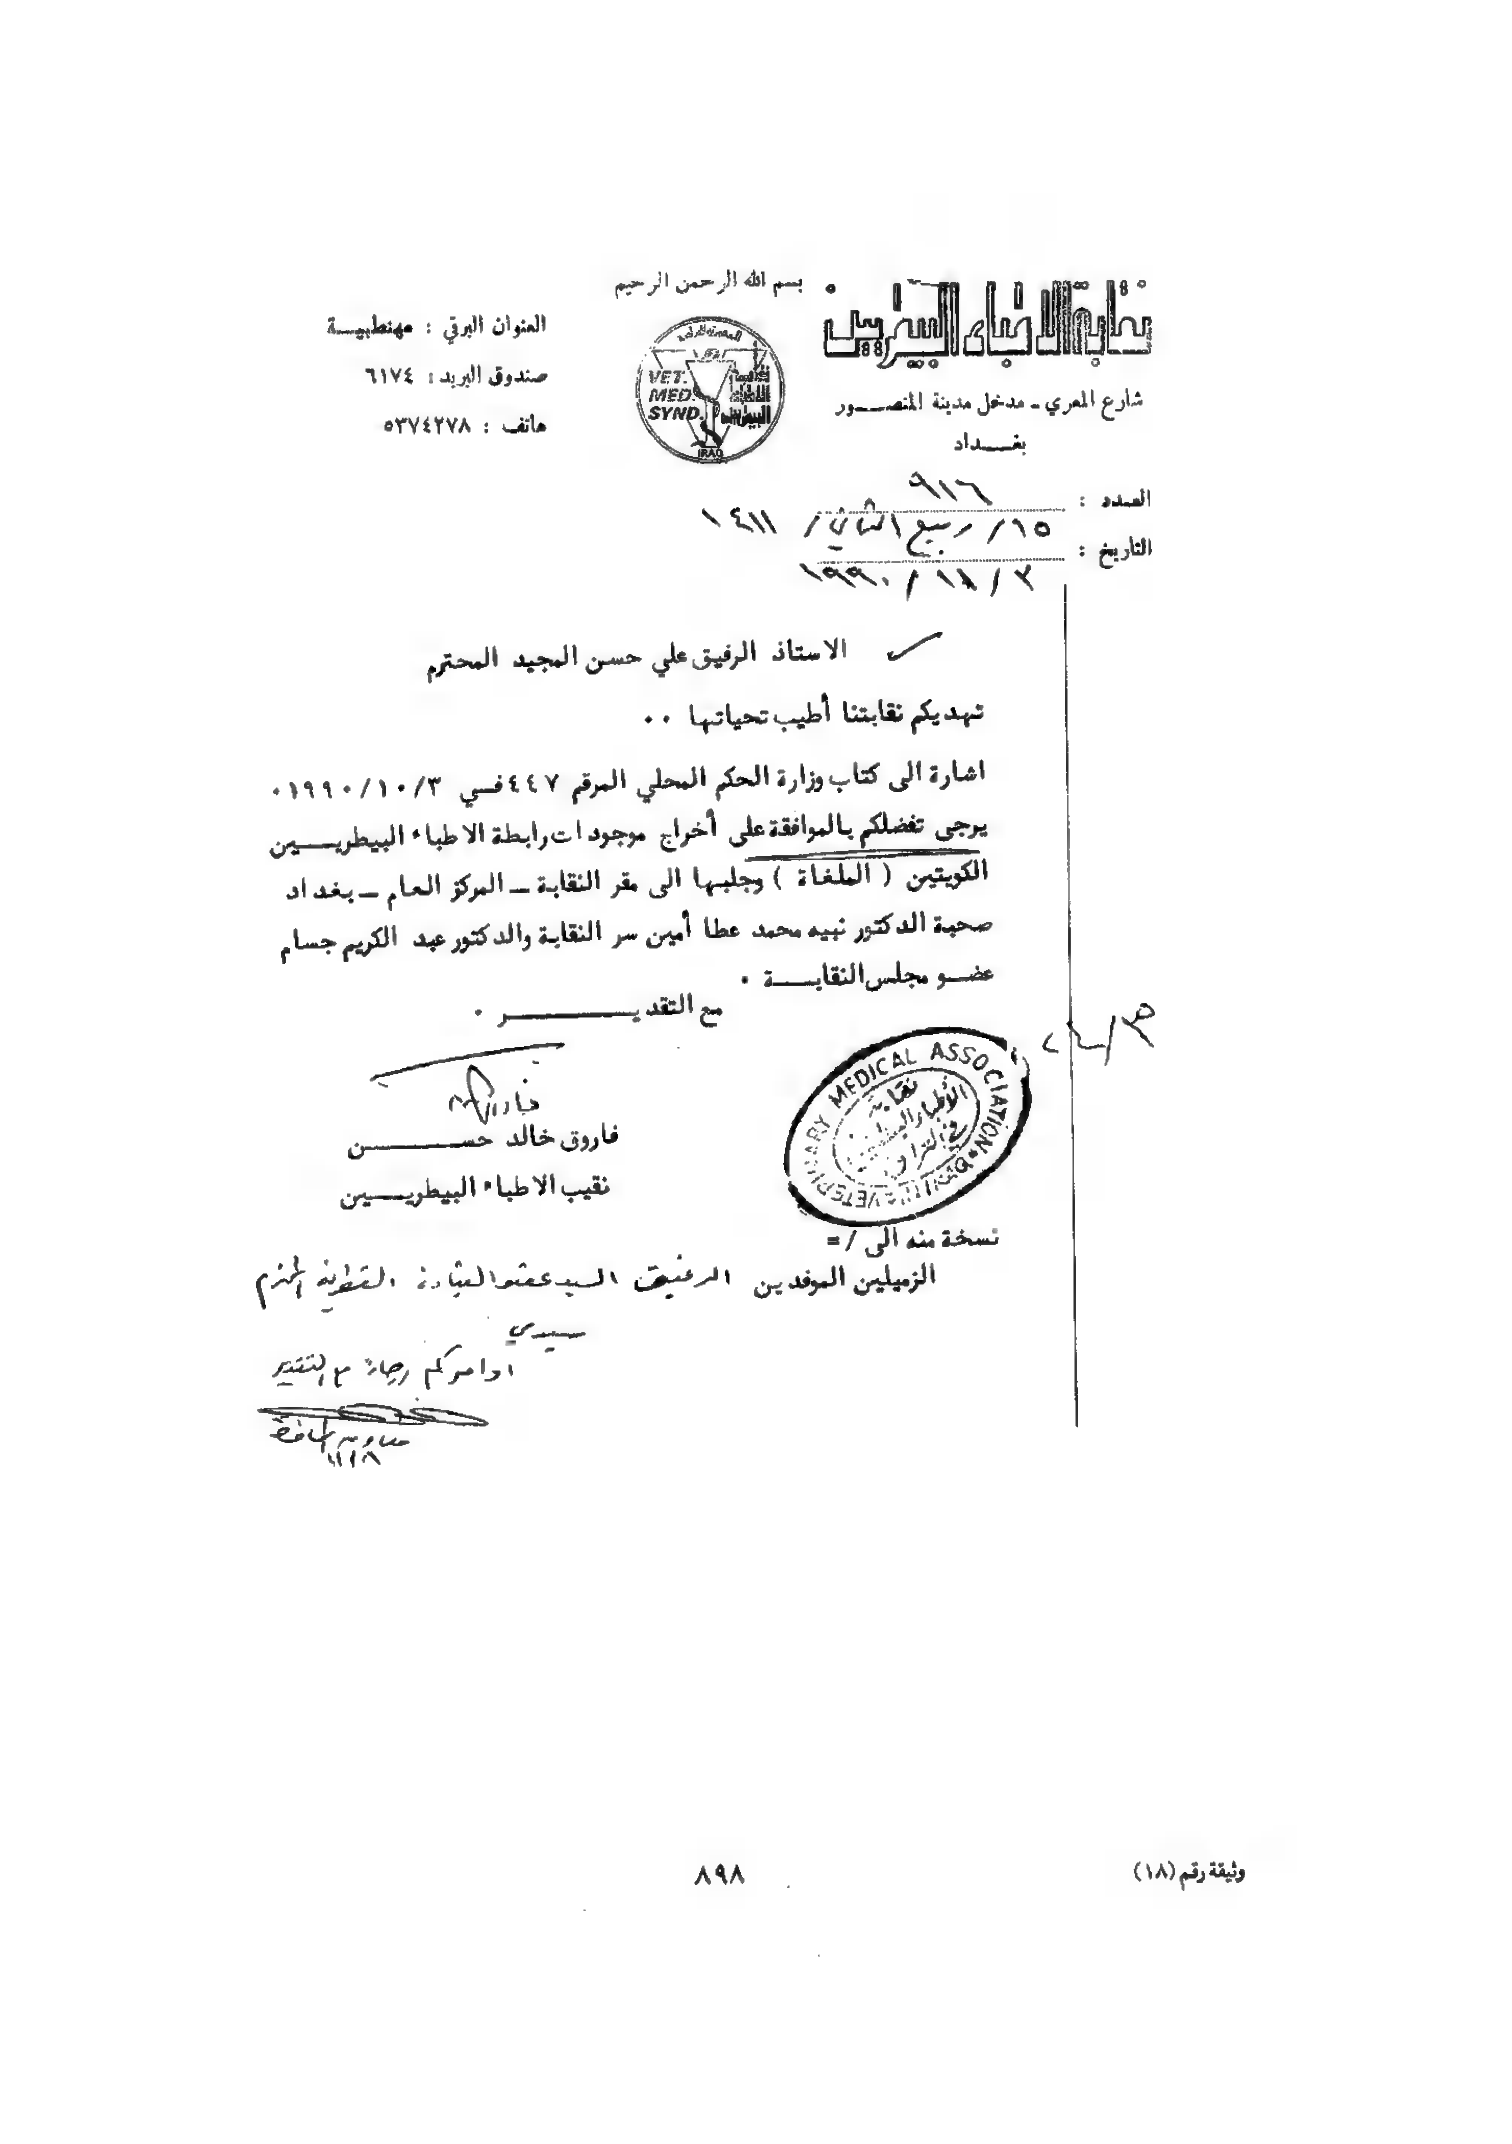 بسم الله الرحمن الرحيم
نقابة الاطباء البيطريين
شارع المعري - مدخل مدينة المنصــور
بغــداد
العنوان البرقي : مهنطبيــة
صندوق البريد : ٦١٧٤
هاتف : ٥٣٧٤٢٧٨
VET.
MED.
SYND.
نقابة
الاطباء
البيطريين
IRAQ
العدد : ٩١٦
التاريخ : ١٥/ ربيع الثاني / ١٤١١
٣ / ١١ / ١٩٩٠
الاستاذ الرفيق علي حسن المجيد المحترم
تهديكم نقابتنا أطيب تحياتها ٠٠
اشارة الى كتاب وزارة الحكم المحلي المرقم ٤٤٧ فــي ٣/١٠/١٩٩٠ ٠
يرجى تفضلكم بالموافقة على أخراج موجودات رابطة الاطباء البيطريــــين
الكويتين ( الملغاة ) وجلبها الى مقر النقابة ــ المركز العام ــ بغداد
صحبة الدكتور نبيه محمد عطا أمين سر النقابة والدكتور عبد الكريم جسام
عضــو مجلس النقابــــة ٠
مع التقديــــــــر ٠
VETERINARY MEDICAL ASSOCIATION
نقابة
الأطباء البيطريين
في العراق
فاروق خالد حســـــــن
نقيب الاطباء البيطريــــين
نسخة منه الى /=
الزميلين الموفدين
الرفيق السيد عضو القيادة القطرية المحترم
سيدي
اوامركم رجاءً مع التقدير
وثيقة رقم (١٨)
٨٩٨